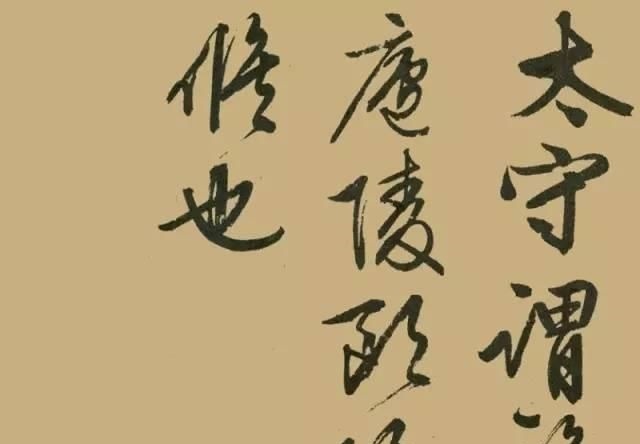 太守謂
廬陵歐
修也